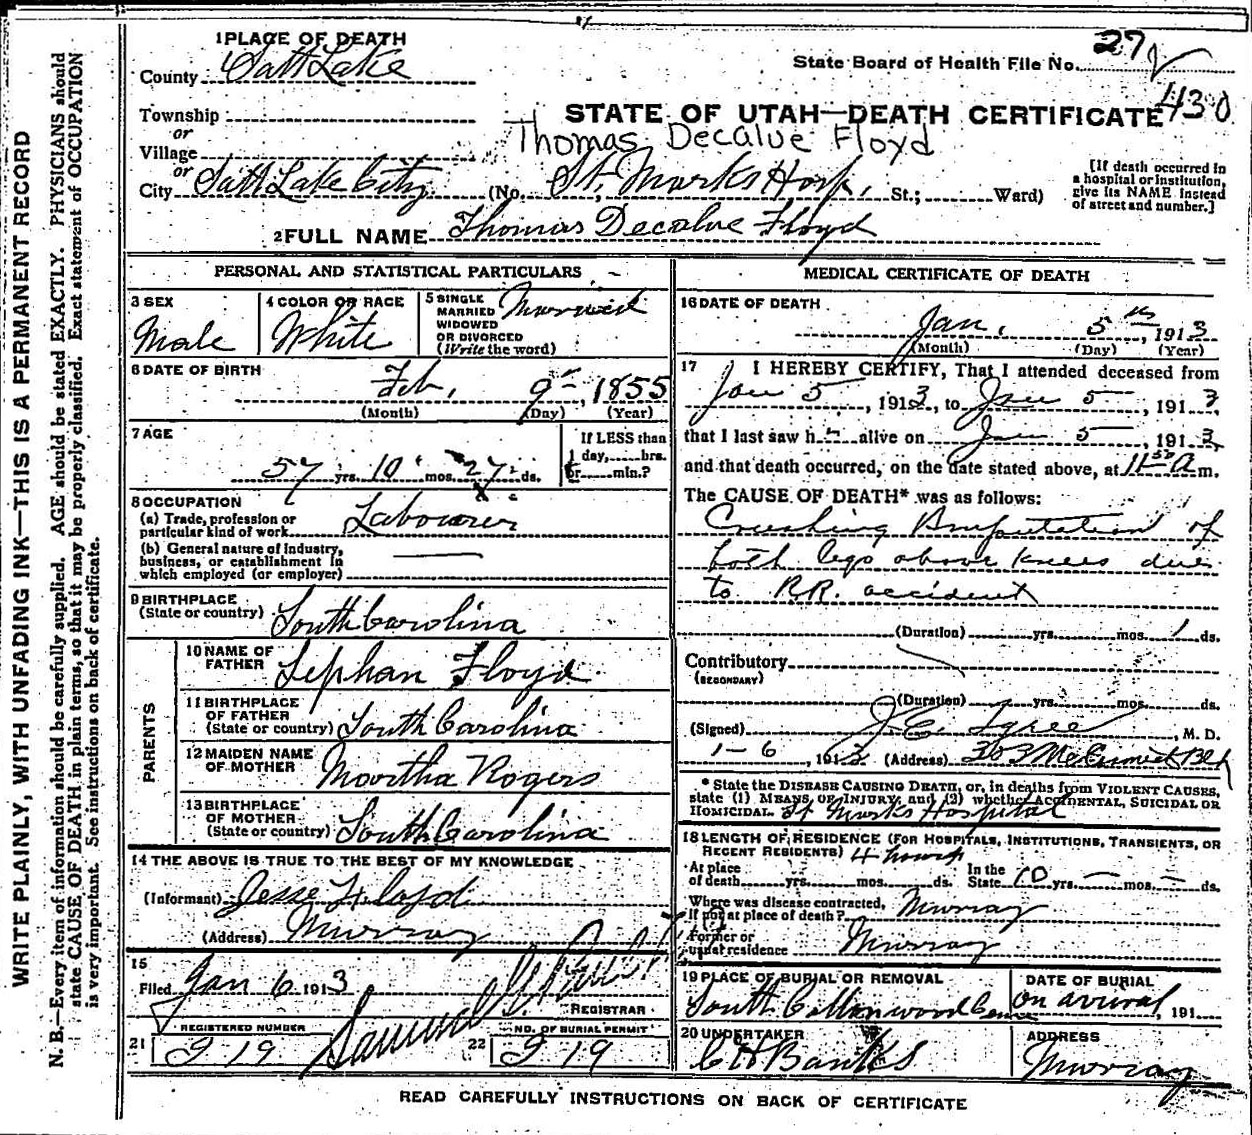 WRITE PLAINLY, WITH UNFADING INK—THIS IS A PERMANENT RECORD
N. B.—Every item of information should be carefully supplied. AGE should be stated EXACTLY. PHYSICIANS should
state CAUSE OF DEATH in plain terms, so that it may be properly classified. Exact statement of OCCUPATION
is very important. See instructions on back of certificate.
1 PLACE OF DEATH
County Salt Lake
State Board of Health File No. 27
430
Township
or
STATE OF UTAH—DEATH CERTIFICATE
Thomas Decalve Floyd
Village
or
City Salt Lake City (No. St. Marks Hosp, St.; Ward)
[If death occurred in
a hospital or institution,
give its NAME instead
of street and number.]
2 FULL NAME Thomas Decalve Floyd
PERSONAL AND STATISTICAL PARTICULARS
3 SEX
Male
4 COLOR OR RACE
White
5 SINGLE
MARRIED
WIDOWED
OR DIVORCED
(Write the word)
Married
6 DATE OF BIRTH
Feb, 9th, 1855
(Month) (Day) (Year)
7 AGE
57 yrs. 10 mos. 27 ds.
If LESS than
1 day, hrs.
or min.?
8 OCCUPATION
(a) Trade, profession or
particular kind of work Labourer
(b) General nature of industry,
business, or establishment in
which employed (or employer)
9 BIRTHPLACE
(State or country) South Carolina
PARENTS
10 NAME OF
FATHER Sephan Floyd
11 BIRTHPLACE
OF FATHER
(State or country) South Carolina
12 MAIDEN NAME
OF MOTHER Martha Rogers
13 BIRTHPLACE
OF MOTHER
(State or country) South Carolina
14 THE ABOVE IS TRUE TO THE BEST OF MY KNOWLEDGE
(Informant) Jesse Floyd
(Address) Murray
15
Filed Jan 6 1913
Samuel
REGISTRAR
21 REGISTERED NUMBER
J 19
22 NO. OF BURIAL PERMIT
J 19
MEDICAL CERTIFICATE OF DEATH
16 DATE OF DEATH
Jan, 5th, 1913
(Month) (Day) (Year)
17 I HEREBY CERTIFY, That I attended deceased from
Jan 5, 1913, to Jan 5, 1913
that I last saw h alive on Jan 5, 1913,
and that death occurred, on the date stated above, at 11 50 A m.
The CAUSE OF DEATH* was as follows:
Crushing Amputation of
both legs above knees due
to R.R. accident
(Duration) yrs. mos. 1 ds.
Contributory
(SECONDARY)
(Duration) yrs. mos. ds.
(Signed) J. C., M. D.
1-6, 1913 (Address) 303 McCornick Blk
* State the DISEASE CAUSING DEATH, or, in deaths from VIOLENT CAUSES,
state (1) MEANS OF INJURY; and (2) whether ACCIDENTAL, SUICIDAL OR
HOMICIDAL. St Marks Hospital
18 LENGTH OF RESIDENCE (FOR HOSPITALS, INSTITUTIONS, TRANSIENTS, OR
RECENT RESIDENTS) 4 hours
At place
of death yrs. mos. ds.
In the
State 10 yrs. — mos. — ds.
Where was disease contracted,
If not at place of death? Murray
Former or
usual residence Murray
19 PLACE OF BURIAL OR REMOVAL
South Cottonwood Cem
DATE OF BURIAL
on arrival, 191
20 UNDERTAKER
C H Banks
ADDRESS
Murray
READ CAREFULLY INSTRUCTIONS ON BACK OF CERTIFICATE